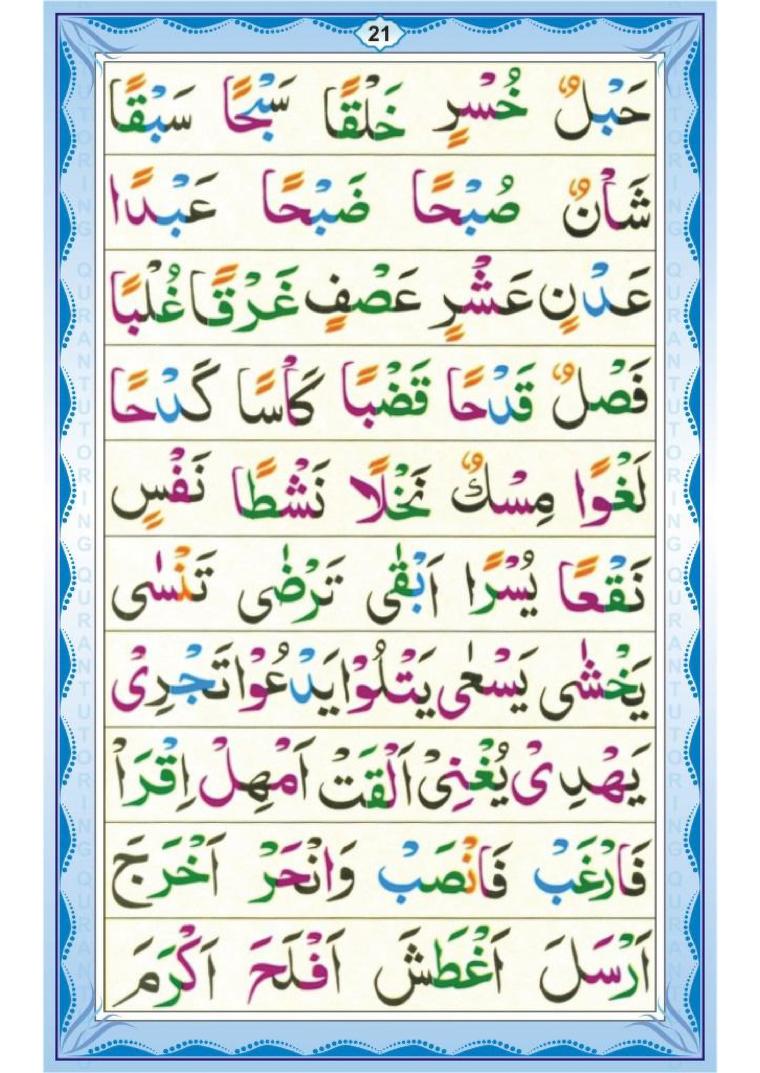 21
حَبْلٌ خُسْرٍ خَلْقًا سَبْحًا سَبْقًا
شَأْنٌ صُبْحًا ضَبْحًا عَبْدًا
عَدْنٍ عَشْرٍ عَصْفٍ غَرْقًا غُلْبًا
فَصْلٌ قَدْحًا قَضْبًا كَأْسًا كَدْحًا
لَغْوًا مِسْكٌ نَخْلًا نَشْطًا نَفْسٍ
نَقْعًا يُسْرًا اَبْقٰى تَرْضٰى تَنْسٰى
يَخْشٰى يَسْعٰى يَتْلُوْا يَدْعُوْا تَجْرِىْ
يَهْدِىْ يُغْنِىْ اَلْقَتْ اَمْهِلْ اِقْرَاْ
فَارْغَبْ فَانْصَبْ وَانْحَرْ اَخْرَجَ
اَرْسَلَ اَغْطَشَ اَفْلَحَ اَكْرَمَ
QURAN TUTORING QURAN TUTORING